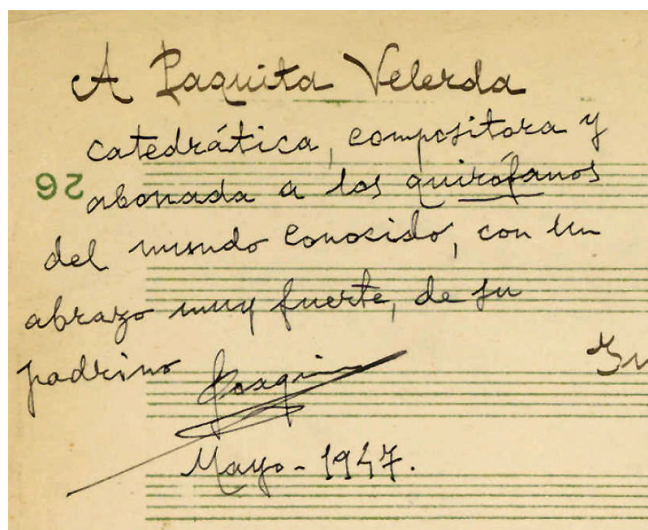 A Paquita Velerda
catedrática, compositora y
26
abonada a los quirófanos
del mundo conocido, con un
abrazo muy fuerte, de su
padrino
Joaquin
Mayo - 1947.